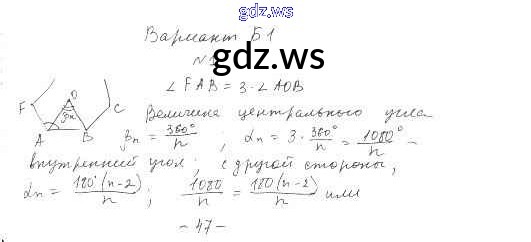 gdz.ws
Вариант Б1
gdz.ws
N1
∠FAB = 3·∠AOB
F O C A B βn
Величина центрального угла
βn = 360°/n ; αn = 3 · 360°/n = 1080°/n –
внутренний угол; с другой стороны,
αn = 180°(n-2)/n ; 1080/n = 180(n-2)/n или
- 47 -